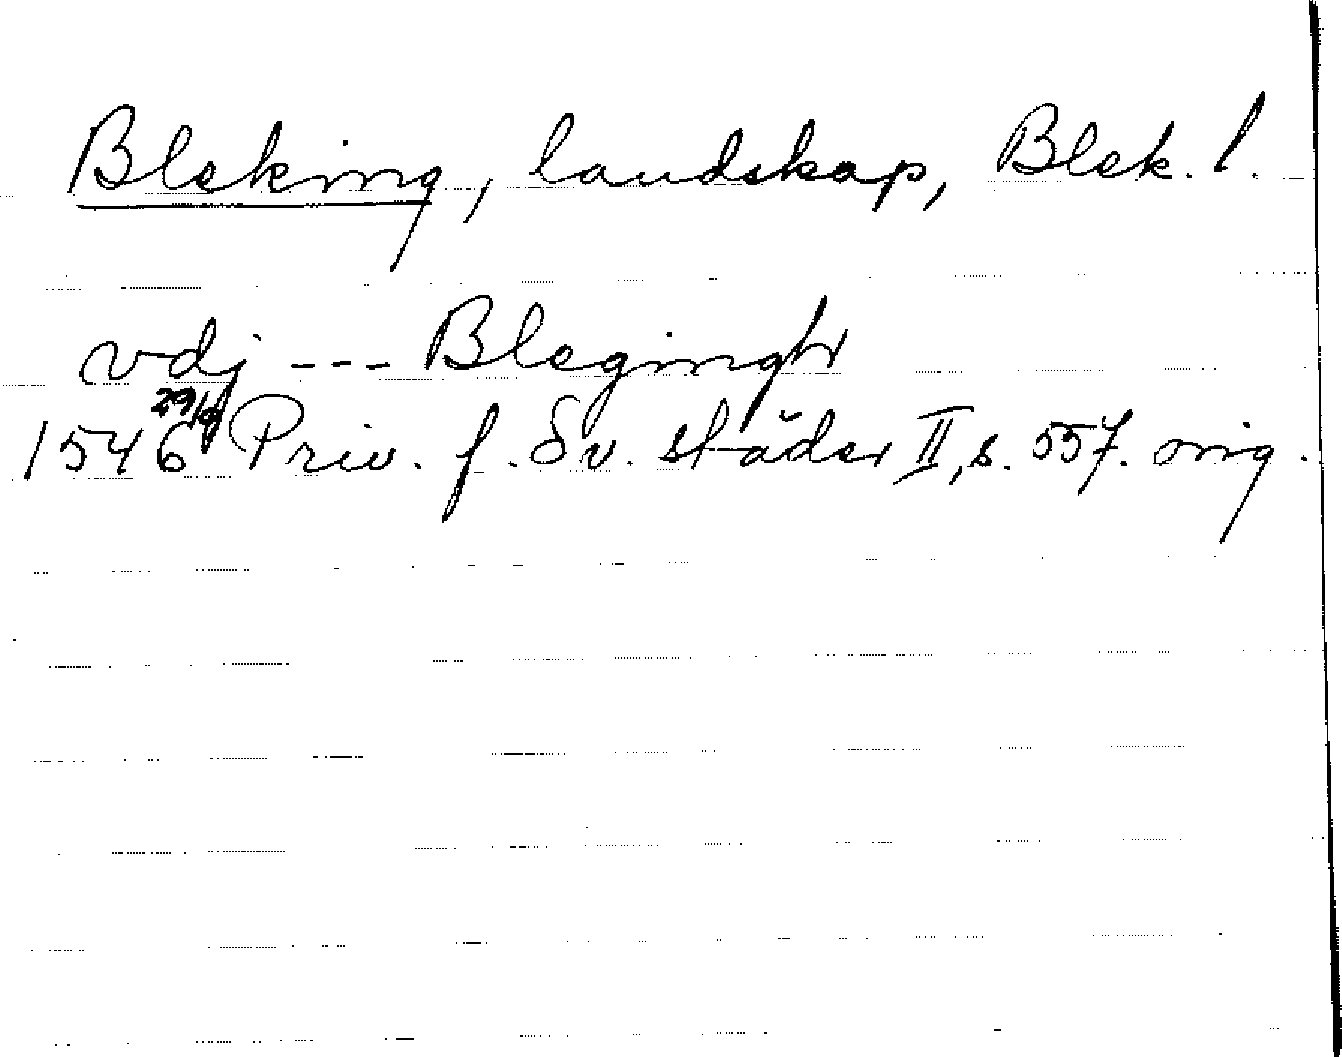 Bleking, landskap, Blek. l.
vdj --- Blegingh
1546 29/9 Priv. f. Sv. städer II, s. 557. orig.